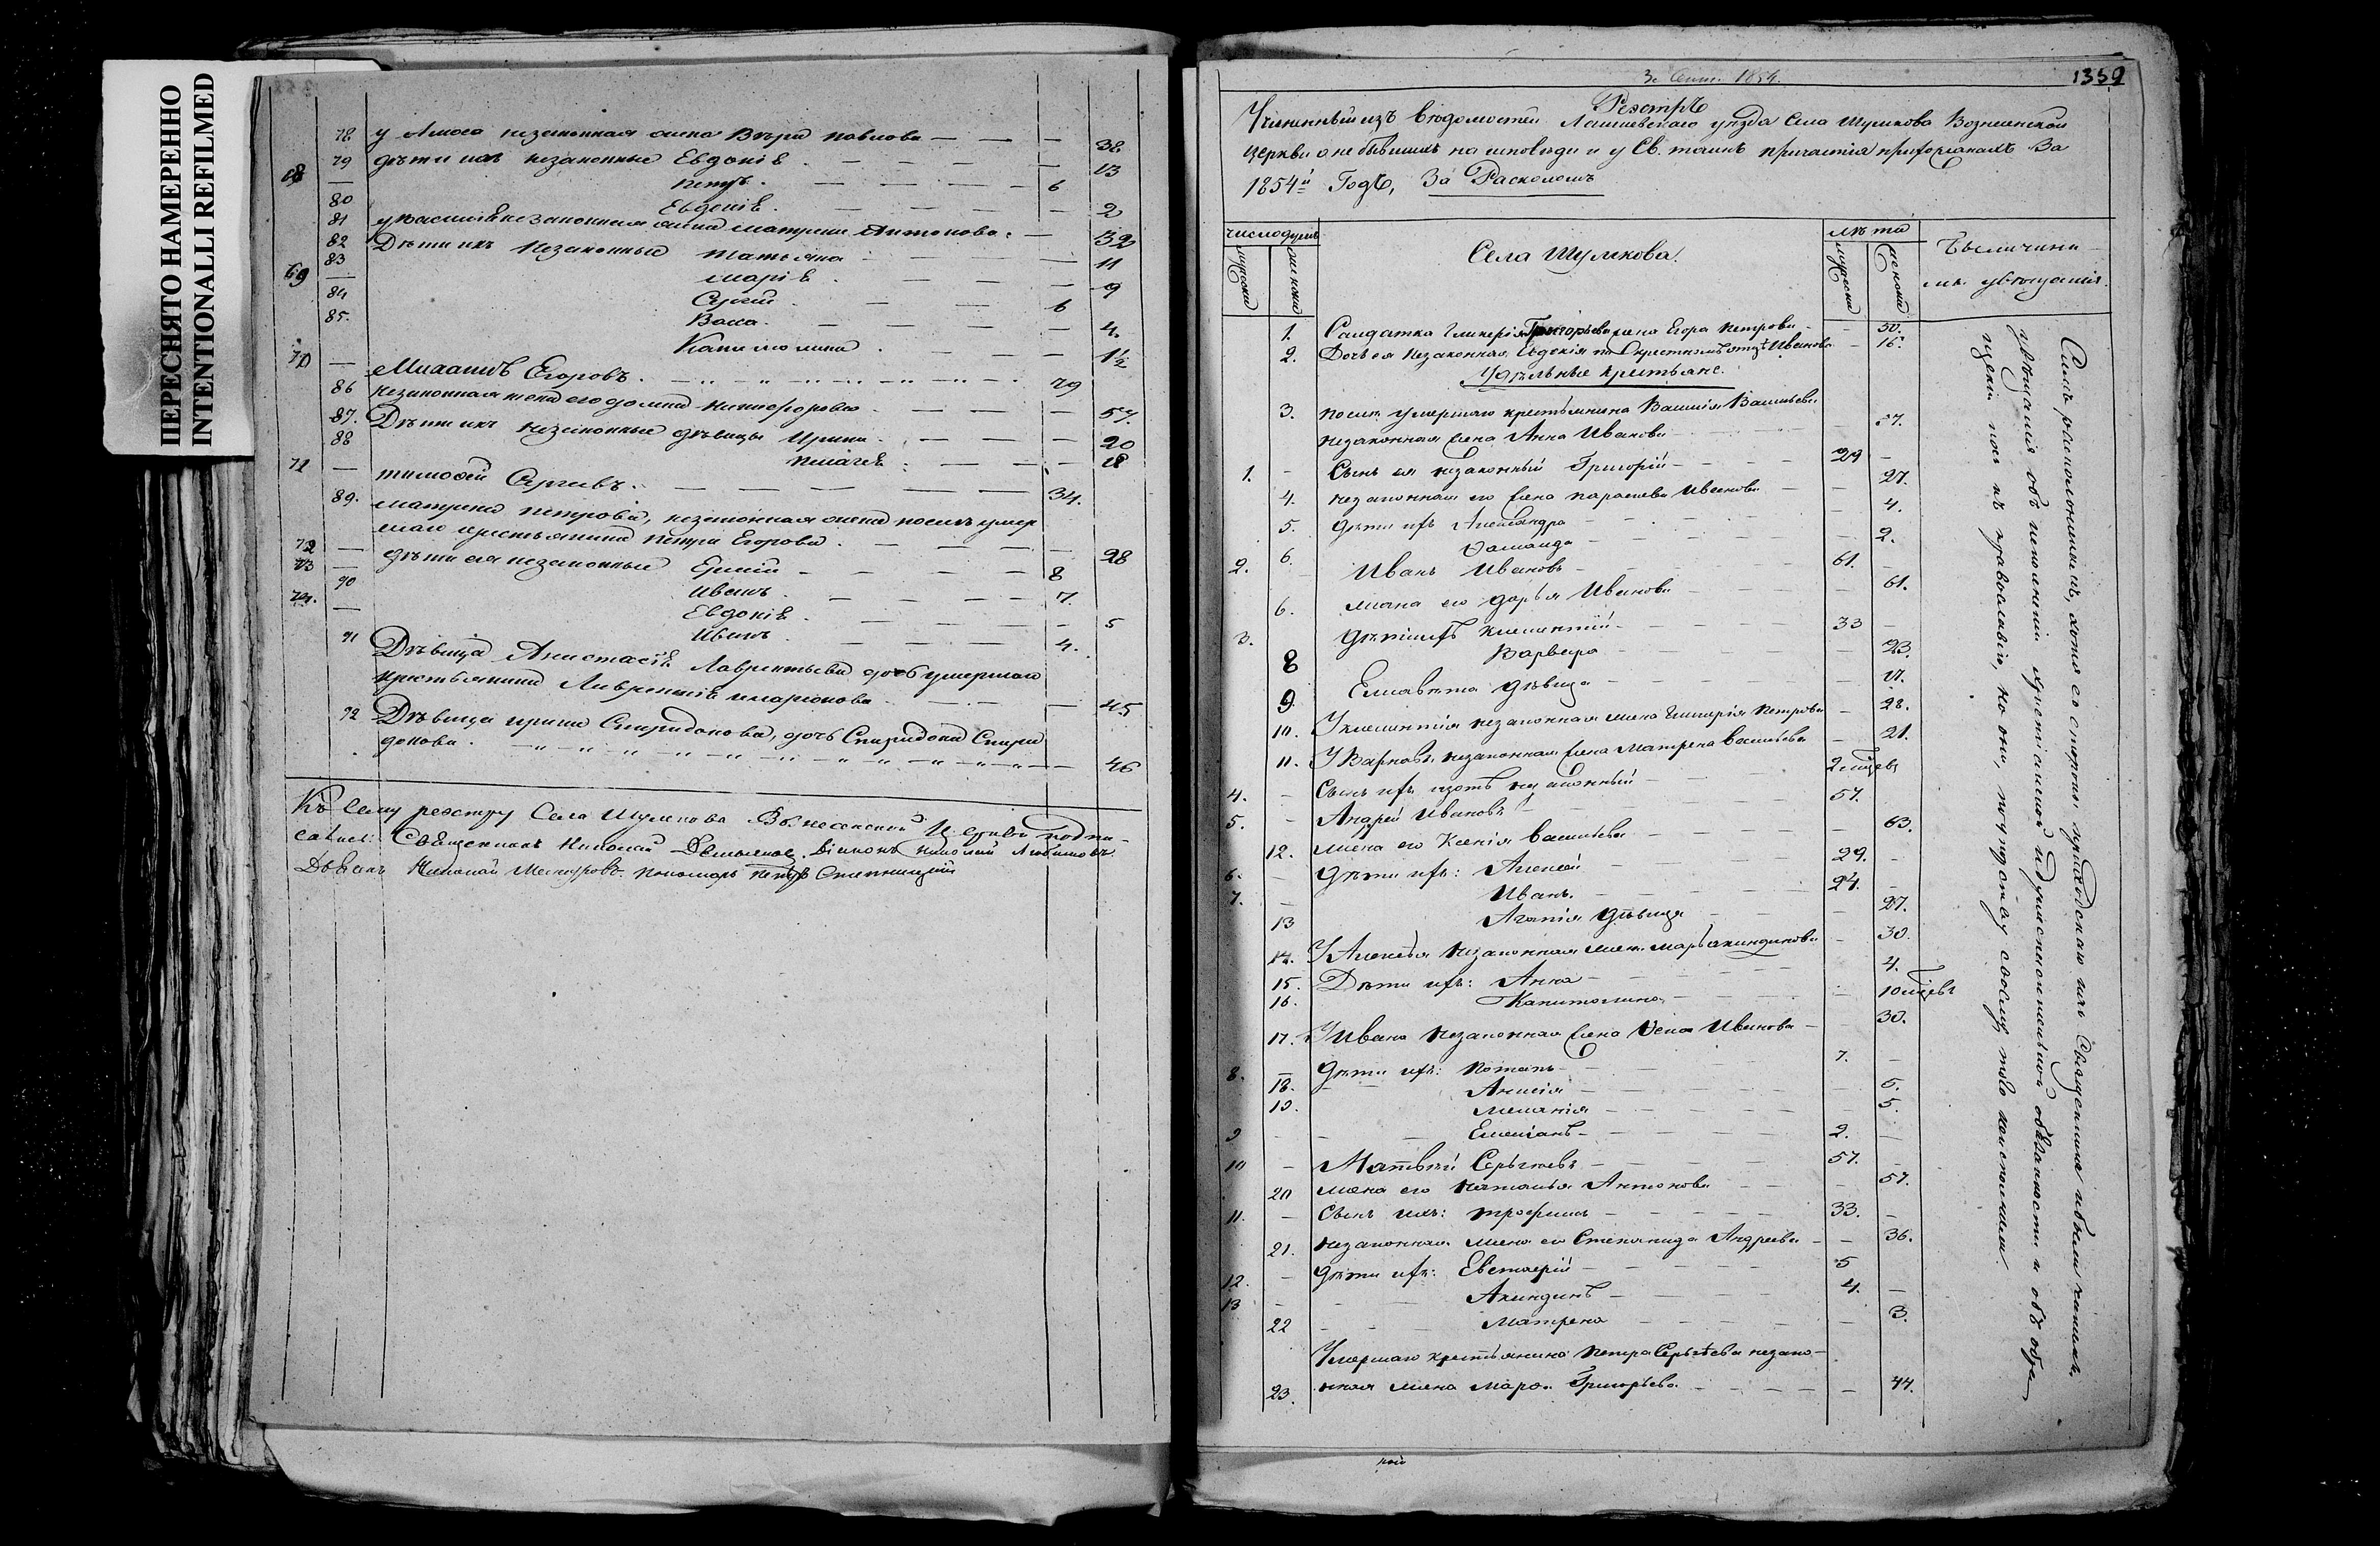 ПЕРЕСНЯТО НАМЕРЕННО
INTENTIONALLI REFILMED
78 у Амоса незаконная жена Вѣра Павлова — 38
79 дѣти ихъ незаконные Евдокія — 13
68 — Петръ — 6
80 Евдокія — 2
81 у Василія незаконная жена Матрена Антонова — 32
82 Дѣти ихъ незаконные Татьяна — 11
83 Марія — 9
69 — Сергій — 6
84 Васса — 4.
85. Капитолина — 1½
70 — Михаилъ Егоровъ — 79
86 незаконная жена его Домна Никифорова — 57.
87. Дѣти ихъ незаконные дѣвицы Ирина — 20
88 Пелагея — 18
71 — Тимофей Сергѣевъ — 34.
89. Матрена Петрова, незаконная жена послѣ умер
шаго крестьянина Петра Егорова — 28
72 — дѣти ея незаконные Ермій — 8
73 — Иванъ — 7.
90 Евдокія — 5
74. — Иванъ — 4.
91 Дѣвица Анастасія Лаврентьева дочь умершаго
крестьянина Лаврентія Иларіонова — 45
92 Дѣвица Ирина Спиридонова, дочь Спиридона Спири
донова — 46
Къ сему реестру Села Шумкова Вознесенской Церкви подпи-
сались: Священникъ Николай Діаконъ Николай Любимовъ
Дьячекъ Николай Пономарь Петръ
3. 1854. 1359
Реестръ
Учиненный изъ вѣдомостей Лаишевскаго уѣзда Села Шумкова Вознесенской
церкви о не бывшихъ на исповѣди и у Св. таинъ причастія прихожанахъ За
1854й Годъ, За Расколомъ
число душъ лѣта
мужеска женска Села Шумкова. мужеска женска
увѣщанія.
1. Салдатка Гликерія Григорьева жена Егора Петрова — 50.
2. Дочь ея незаконная Евдокія по Крестномъ отцѣ Иванова — 16.
Удѣльные крестьяне.
3. послѣ умершаго крестьянина Василія Васильева
незаконная жена Анна Иванова — 57.
1. — Сынъ ея незаконный Григорій — 29 —
4. незаконная его жена Параскева Иванова — 27.
5. дѣти ихъ Александра — 4.
6. — 2.
2. Иванъ Ивановъ — 61. —
6. жена его Дарья Иванова — 61.
3. дѣти ихъ Климентій — 33 —
8 Варвара — 23.
9 Елисавета дѣвица — 17.
10. У Климентія незаконная жена Гликерія Петрова — 28.
11. У незаконная жена Матрена Васильева — 21.
4. — Сынъ ихъ незаконный — 2 мѣсяц
5. — Андрей Ивановъ — 57.
12. жена его Ксенія Васильева — 63.
6. — Дѣти ихъ: Алексѣй — 29. —
7. — Иванъ. — 24. —
13 Агапія дѣвица — 27.
14. У Алексѣя незаконная жена Марья Акиндинова — 30.
15. Дѣти ихъ: Анна — 4.
16. Капитолина — 10 мѣсяц
17. У Ивана незаконная жена Иванова — 30.
8. — Дѣти ихъ: Потапъ — 7. —
18. Анисія — 5.
19. Меланія — 5.
9 — Емеліанъ — 2. —
10 — Матвѣй Сергѣевъ — 57. —
20 жена его Наталья Антонова — 57.
11. — Сынъ ихъ: Трофимъ — 33. —
21. незаконная жена его Степанида Андреева — 36.
12. — дѣти ихъ: — 5
13 — Акиндинъ — 4. —
22 Матрена — 3.
Умершаго крестьянина Петра Сергѣева незако-
23. нная жена Марфа Григорьева — 44.
Симъ раскольникамъ, хотя со стороны приходскаго ихъ Священника и были чинимы
увѣщанія объ исполненіи христіанской обязанности и объ обра-
щеніи ихъ къ православію, но они, по упорству своему, того не исполнили.